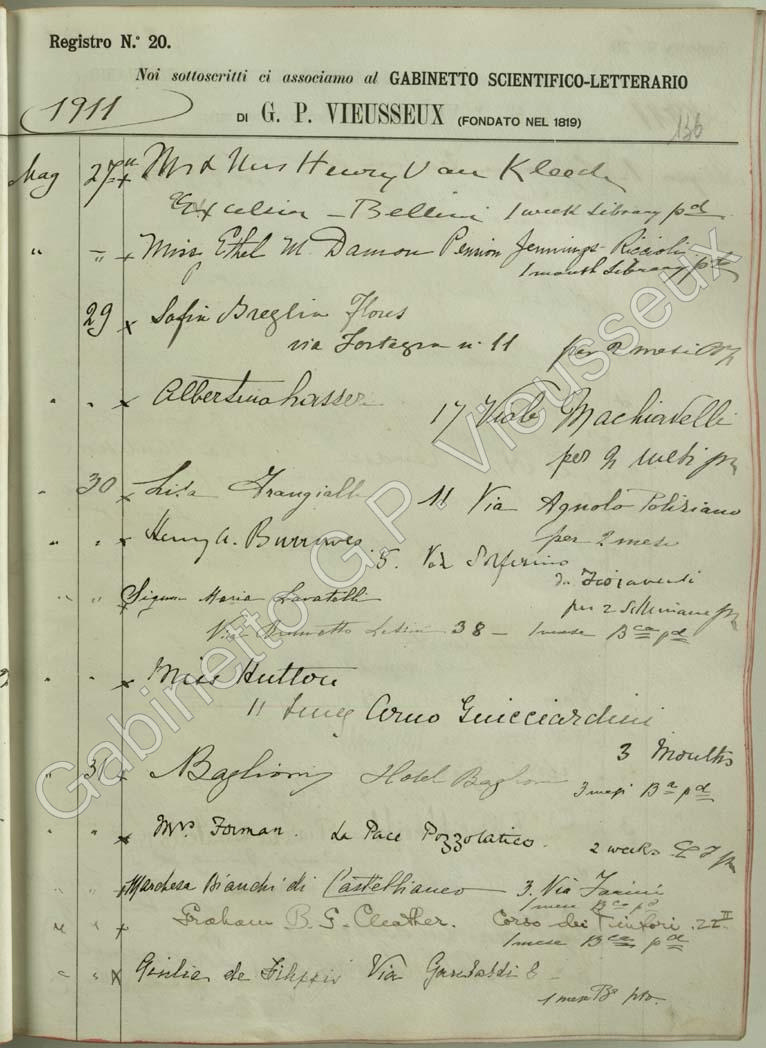 Registro N.° 20.
Noi sottoscritti ci associamo al GABINETTO SCIENTIFICO-LETTERARIO
1911
DI G. P. VIEUSSEUX (FONDATO NEL 1819)
136
Mag 27 x Mr & Mrs Henry Van Kleeck
Excelsior – Bellini 1 week Library pd
" – x Miss Ethel M. Damon Pension Jennings-Riccioli
1 month Library pd
29 x Sofia Breglia Flores
via Fortezza n. 11 per 2 mesi
" " x Albertina
17 Viale Machiavelli
per 2 mesi
" 30 x Lisa Frangialli 11 Via Agnolo Poliziano
per 2 mesi
" " x Henry A. Burrowes 5. Via Solferino
da Fioravanti
per 2 settimane
" " x Signora Maria Lovatelli
Via Brunetto Latini 38 – 1 mese Bca pd
" " x Miss Hutton
11 Lung Arno Guicciardini
3 Months
" 31 x Baglioni Hotel Baglioni
3 mesi Ba pd
" " x Mrs. Forman. La Pace Pozzolatico.
2 weeks
" " x Marchesa Bianchi di Castelbianco – 3. Via Farini
1 mese Bca pd
" " x Graham B. G. Cleather. Corso dei Tintori. 22 II
1 mese Bca pd
" " x Giulia de Filippi Via Garibaldi
1 mese Ba
Gabinetto G.P. Vieusseux